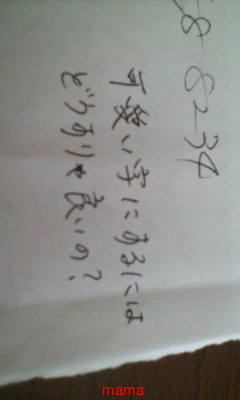 8 8234
可愛い字にするには
どうすりゃ良いの?
mama